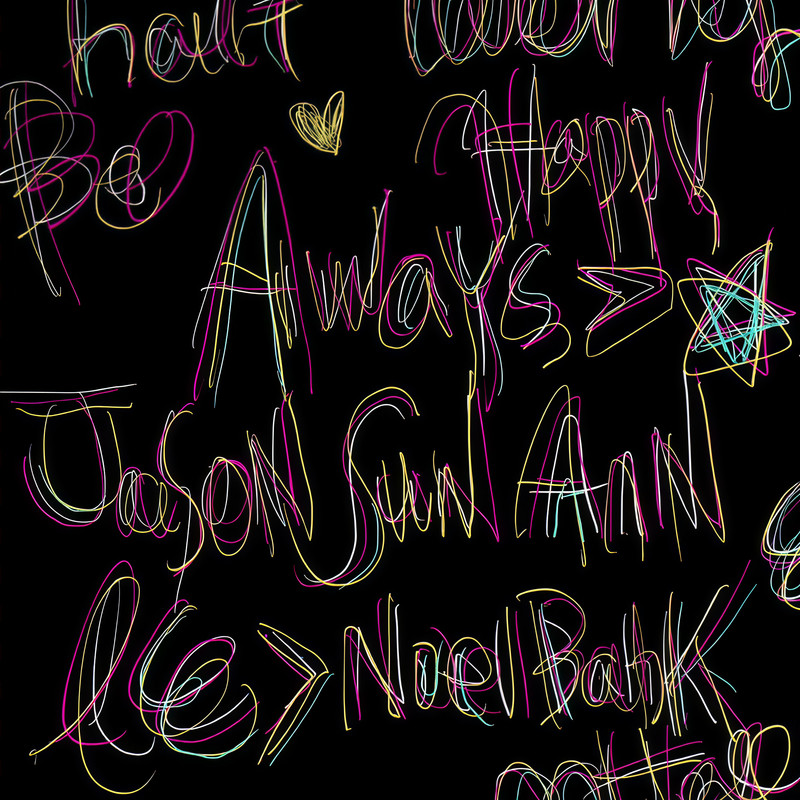 Be Happy
Always >
Jason Sun Ann
le > Noel Bahk